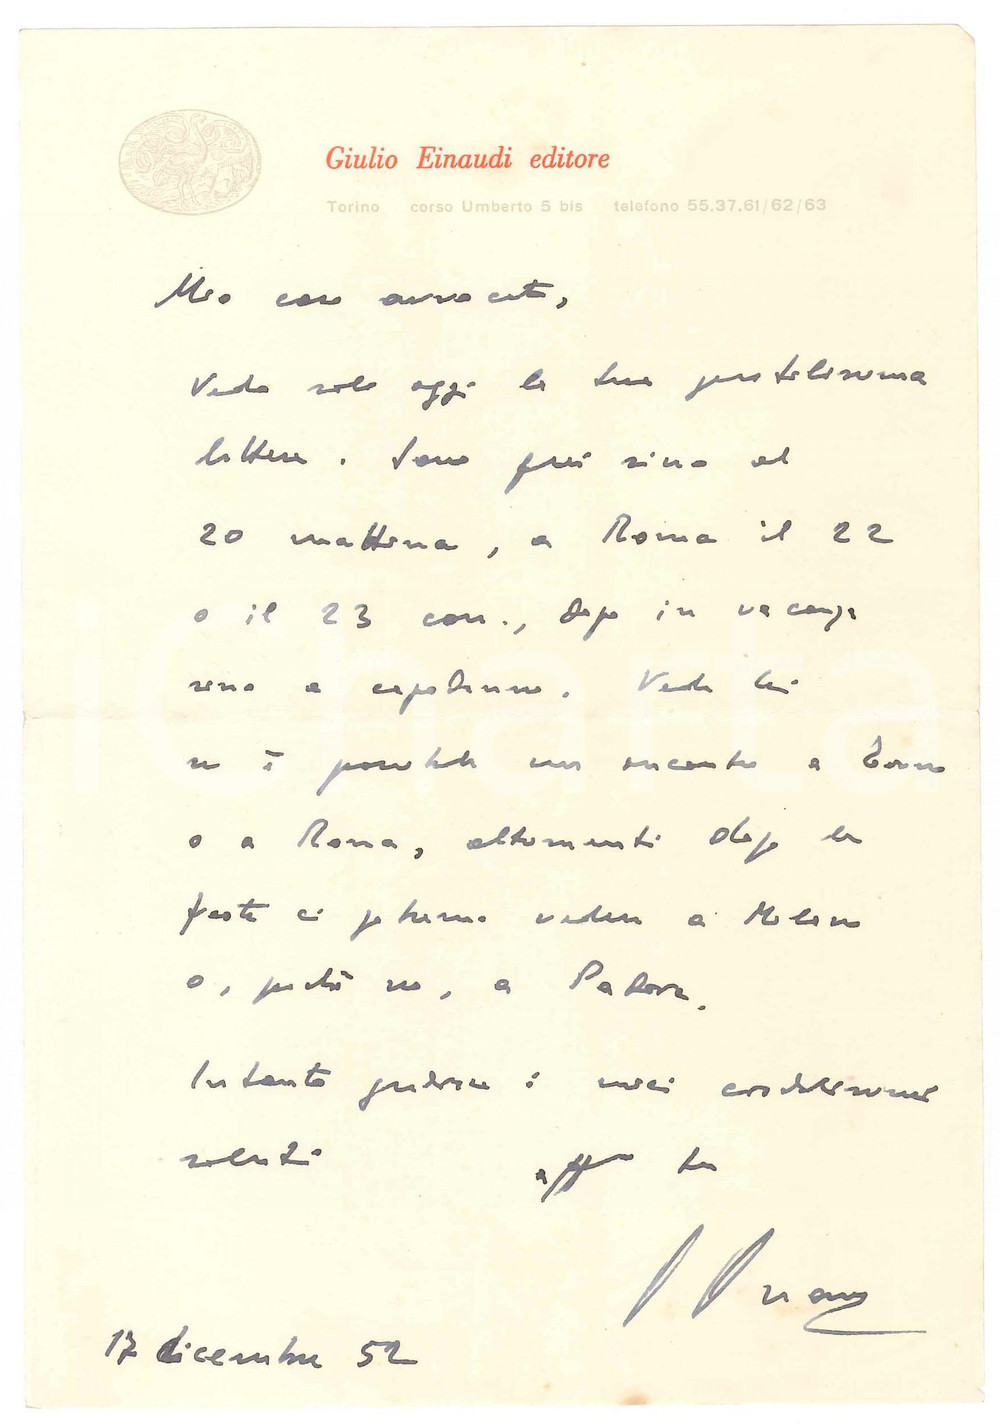 Giulio Einaudi editore
Torino corso Umberto 5 bis telefono 55.37.61/62/63
Mio caro avvocato,
Vedo solo oggi la tua gentilissima
lettera. Sono qui sino al
20 mattina, a Roma il 22
o il 23 corr., dopo in vacanza
sino a capodanno. Veda lei
se è possibile un incontro a Torino
o a Roma, altrimenti dopo le
feste ci potremo vedere a Milano
o, perché no, a Padova.
Intanto gradisca i miei cordialissimi
saluti aff.mo tuo
17 dicembre 52